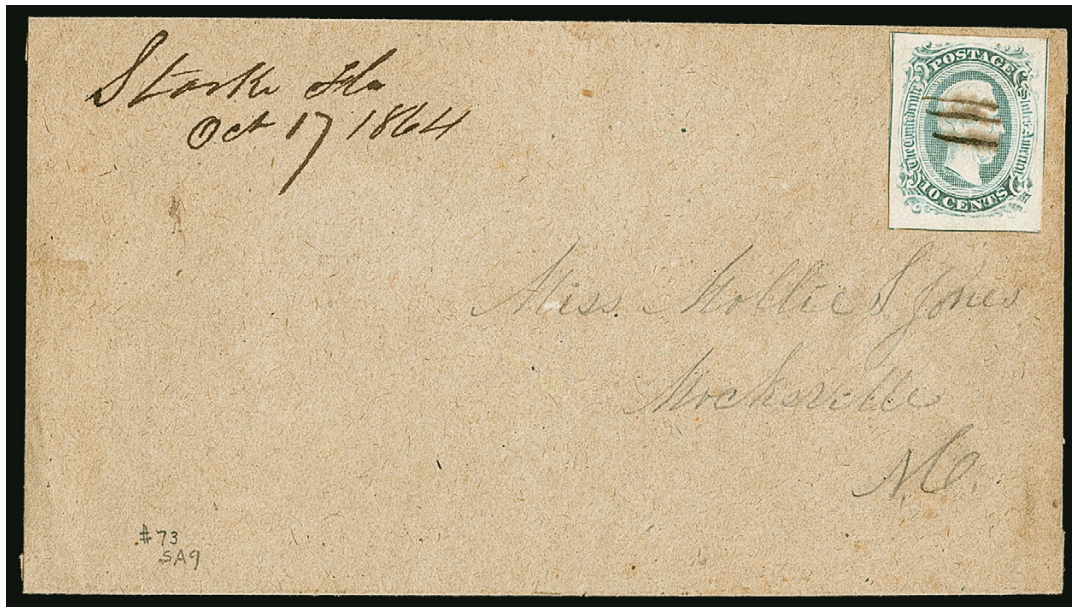 Starke Fla
Oct 17 1864
POSTAGE
The Confederate States of America
10 CENTS
Miss. Mollie S Jones
Mocksville
N.C.
#73
SA9